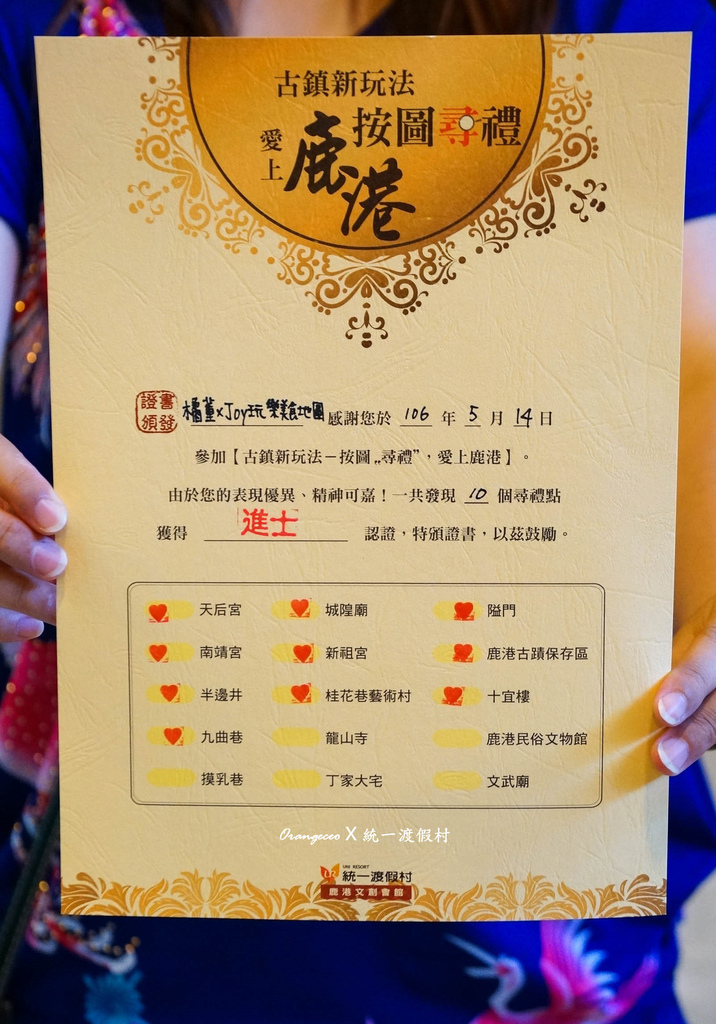 古鎮新玩法
按圖尋禮
愛上
鹿港
證書頒發
橘董xJoy玩樂美食地圖 感謝您於 106 年 5 月 14 日
參加【古鎮新玩法－按圖„尋禮”，愛上鹿港】。
由於您的表現優異、精神可嘉！一共發現 10 個尋禮點
獲得 進士 認證，特頒證書，以茲鼓勵。
天后宮 城隍廟 隘門
南靖宮 新祖宮 鹿港古蹟保存區
半邊井 桂花巷藝術村 十宜樓
九曲巷 龍山寺 鹿港民俗文物館
摸乳巷 丁家大宅 文武廟
Orangeceo X 統一渡假村
UNI RESORT
統一渡假村
鹿港文創會館